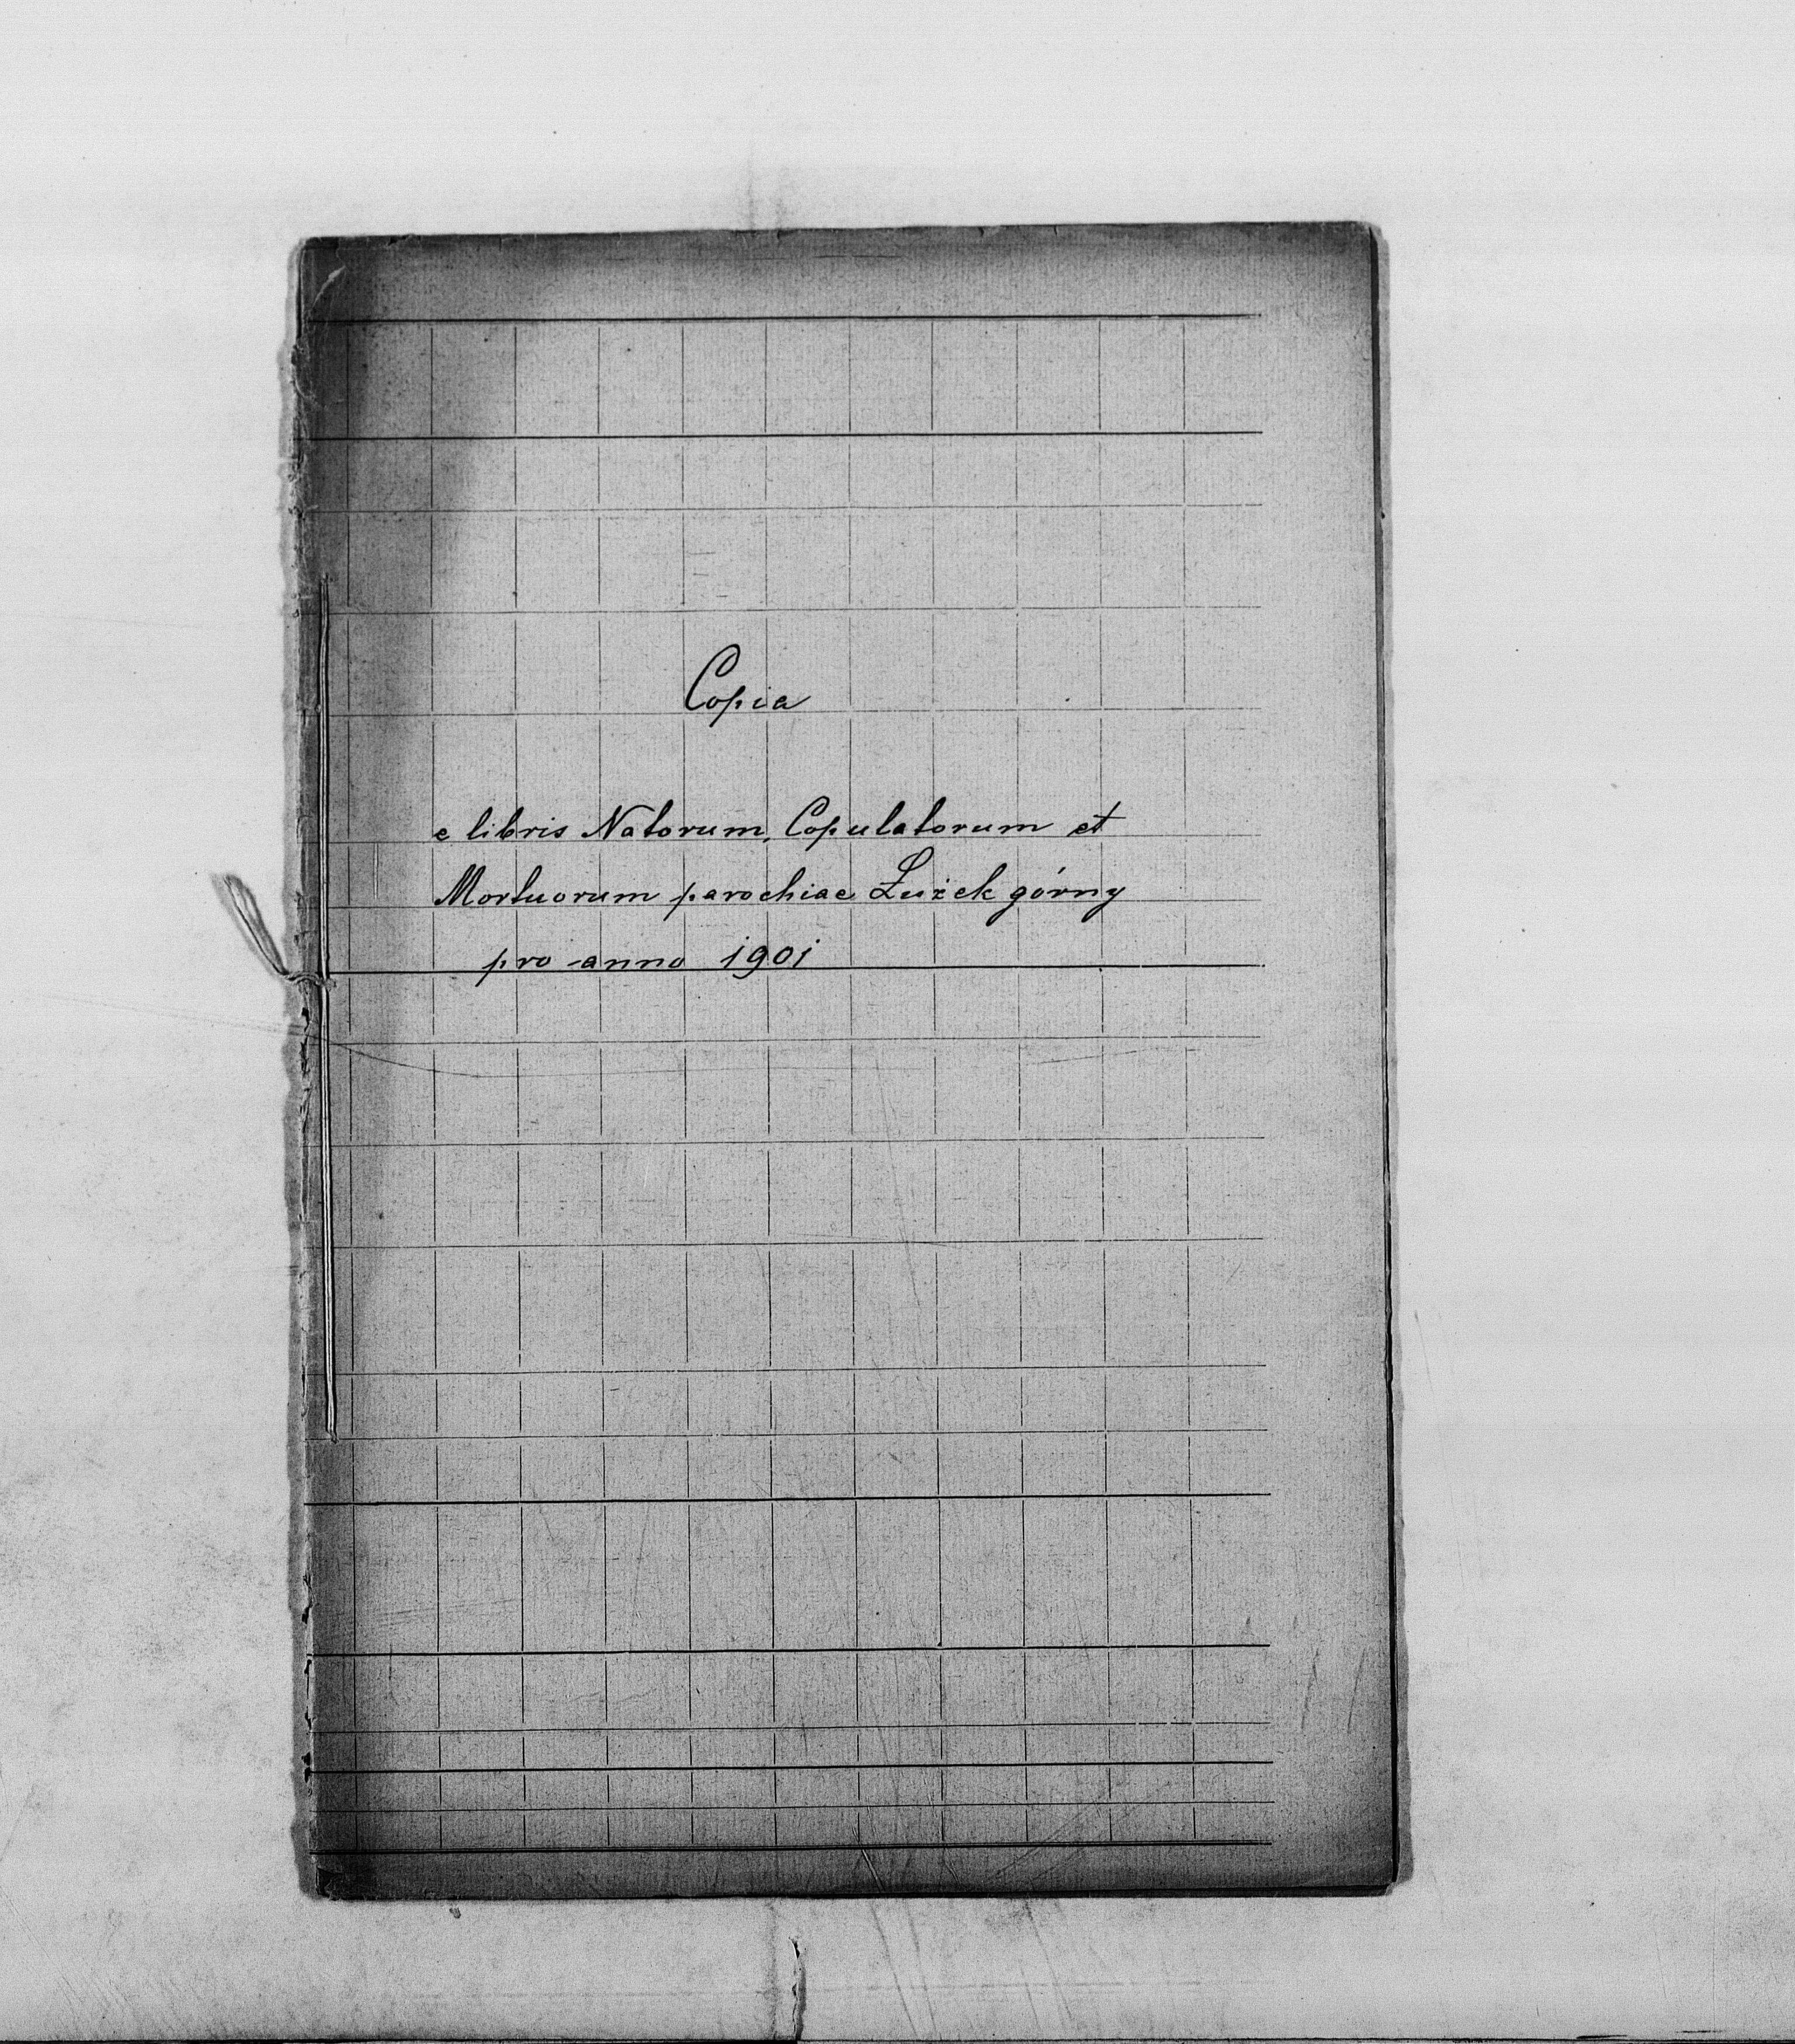 Copia
e libris Natorum, Copulatorum et
Mortuorum parochiae Łużek górny
pro anno 1901